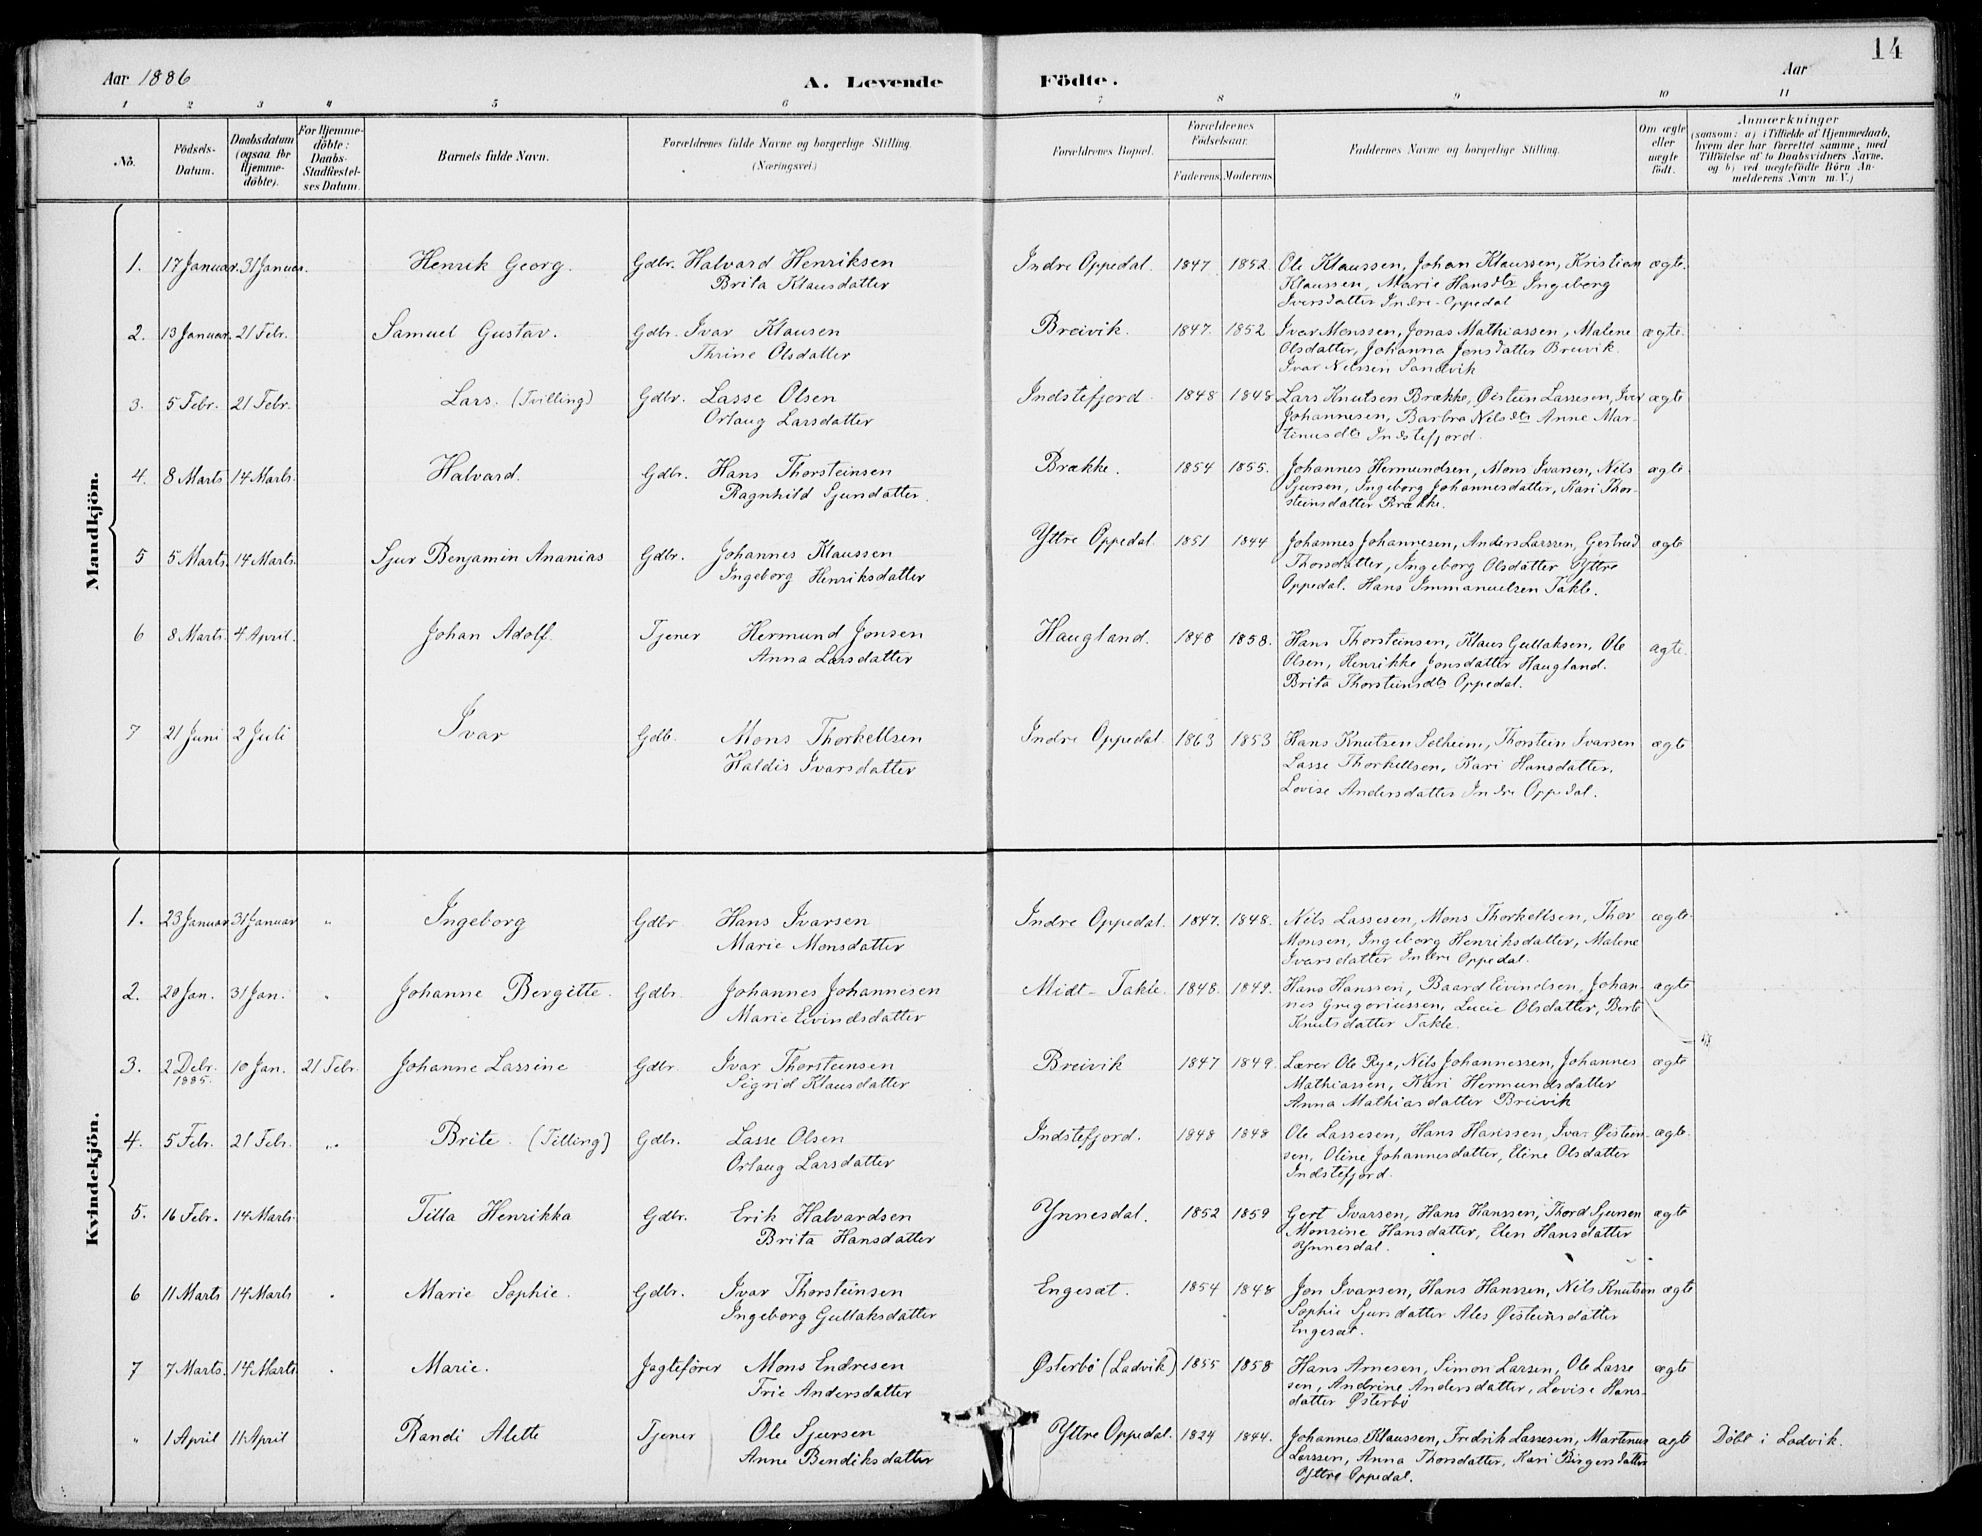 14
Aar 1886 A. Levende Födte. Aar
1 2 3 4 5 6 7 8 9 10 11
No. Födsels-Datum. Daabsdatum (ogsaa for Hjemme-döbte). For Hjemme-döbte: Daabs-Stadfæstel-ses Datum. Barnets fulde Navn. Forældrenes fulde Navne og borgerlige Stilling. (Næringsvei.) Forældrenes Bopæl. Forældrenes Födselsaar. Faderens. Moderens. Faddernes Navne og borgerlige Stilling. Om ægte eller uægte födt. Anmærkninger (saasom: a) i Tilfælde af Hjemmedaab, hvem der har forrettet samme, med Tilföielse af to Daabsvidners Navne, og b) ved uægtefödte Börn An-melderens Navn m. V.)
Mandkjön.
1. 17 Januar. 31 Januar. Henrik Georg. Gdbr. Halvard Henriksen Indre Oppedal. 1847 1852. Ole Klaussen, Johan Klaussen, Kristian ægte.
Brita Klausdatter Klaussen, Marie Hansdtr Ingeborg
Iversdatter Indre-Oppedal
2. 13 Januar. 21 Febr. Samuel Gustav. Gdbr. Ivar Klausen Breivik. 1847. 1852 Ivar Monssen, Jonas Mathiassen, Malene ægte.
Thrine Olsdatter Olsdatter, Johanna Jonsdatter Breivik.
Ivar Nelssen Sandvik
3. 5 Febr. 21 Febr. Lars. (Tvilling) Gdbr. Lasse Olsen Indstefjord. 1848 1848 Lars Knutsen Brække, Østein Lassesen, Iver ægte
Orlaug Larsdatter Johannesen, Barbra Nilsdtr Anne Mar-
tinusdtr Indstefjord.
4. 8 Marts 14 Marts. Halvard. Gdbr. Hans Thorsteinsen Brække. 1854 1855. Johannes Hermundsen, Mons Ivarsen, Nils ægte
Ragnhild Sjursdatter. Sjursen, Ingeborg Johannesdatter, Kari Thor-
steinsdatter Brække.
5 5 Marts. 14 Marts. Sjur Benjamin Ananias Gdbr. Johannes Klaussen Yttre Oppedal. 1851 1844 Johannes Johannesen, Anders Larssen, Gertrud ægte
Ingeborg Henriksdatter Thorsdatter, Ingeborg Olsdatter Yttre
Oppedal. Hans Immanuelsen Takle.
6 8 Marts. 4 April. Johan Adolf. Tjener Hermund Jonsen Haugland. 1848 1858. Hans Thorsteinsen, Klaus Gullaksen, Ole ægte.
Anna Larsdatter Olsen, Henrikke Jonsdatter Haugland.
Brita Thorsteinsdtr Oppedal.
7 21 Juni 2 Juli Ivar Gdb. Mons Thorkellsen Indre Oppedal. 1863 1853 Hans Knutsen Solheim, Thorstein Ivarsen ægte
Haldis Ivarsdatter Lasse Thorkellsen, Kari Hansdatter,
Lovise Andersdatter Indre Oppedal.
Kvindekjön.
1. 23 Januar 31 Januar " Ingeborg Gdbr Hans Ivarsen Indre Oppedal. 1847. 1848. Nils Lassesen, Mons Thorkellsen, Thor ægte
Marie Monsdatter Monsen, Ingeborg Henriksdatter, Malene
Ivarsdatter Indre Oppedal.
2. 20 Jan. 31 Jan. " Johanne Bergitte. Gdbr. Johannes Johannesen Midt-Takle. 1848. 1849. Hans Hanssen, Baard Eivindsen, Johan- ægte
Marie Eivindsdatter nes Gregoriussen, Lucie Olsdatter, Berte
Knutsdatter Takle.
3. 2 Debr. 1885. 10 Jan. 21 Febr. Johanne Lassine Gdbr. Ivar Thorsteinsen Breivik 1847 1849. Lærer Ole Rye, Nils Johannessen, Johannes ægte
Sigrid Klausdatter Mathiassen, Kari Hermundsdatter
Anna Mathiasdatter Breivik
4. 5 Febr. 21 Febr. " Brite. (Tilling) Gdbr. Lasse Olsen Indstefjord. 1848 1848 Ole Lassesen, Hans Hanssen, Ivar Østein- ægte.
Orlaug Larsdatter sen, Oline Johannesdatter, Eline Olsdatter
Indstefjord.
5. 16 Febr. 14 Marts. Tilla Henrikka Gdbr. Erik Halvardsen Ynnesdal. 1852 1859 Gert Ivarsen, Hans Hanssen, Thord Sjursen ægte
Brita Hansdatter Monsine Hansdatter, Elen Hansdatter
Ynnesdal.
6 11 Marts 14 Marts Marie Sophie. Gdbr. Ivar Thorsteinsen Engesæt. 1854 1848 Jon Ivarsen, Hans Hanssen, Nils Knutsen ægte
Ingeborg Gullaksdatter Sophie Sjursdatter Ales Øisteinsdatter
Engesæt.
7 7 Marts. 14 Marts. Marie. Jagtefører Mons Endresen Østerbø (Ladvik) 1855 1858 Hans Arnesen, Simon Larsen, Ole Lasse ægte
Trie Andersdatter sen, Andrine Andersdatter, Lovise Hans-
datter Østerbø
" 1 April 11 April Randi Alette Tjener Ole Sjursen Yttre Oppedal. 1824 1844. Johannes Klaussen, Fredrik Lassesen, Martenus ægte Døbt i Ladvik.
Anne Bendiksdatter Larssen, Anna Thorsdatter, Kari Birgersdatter
Yttre Oppedal.